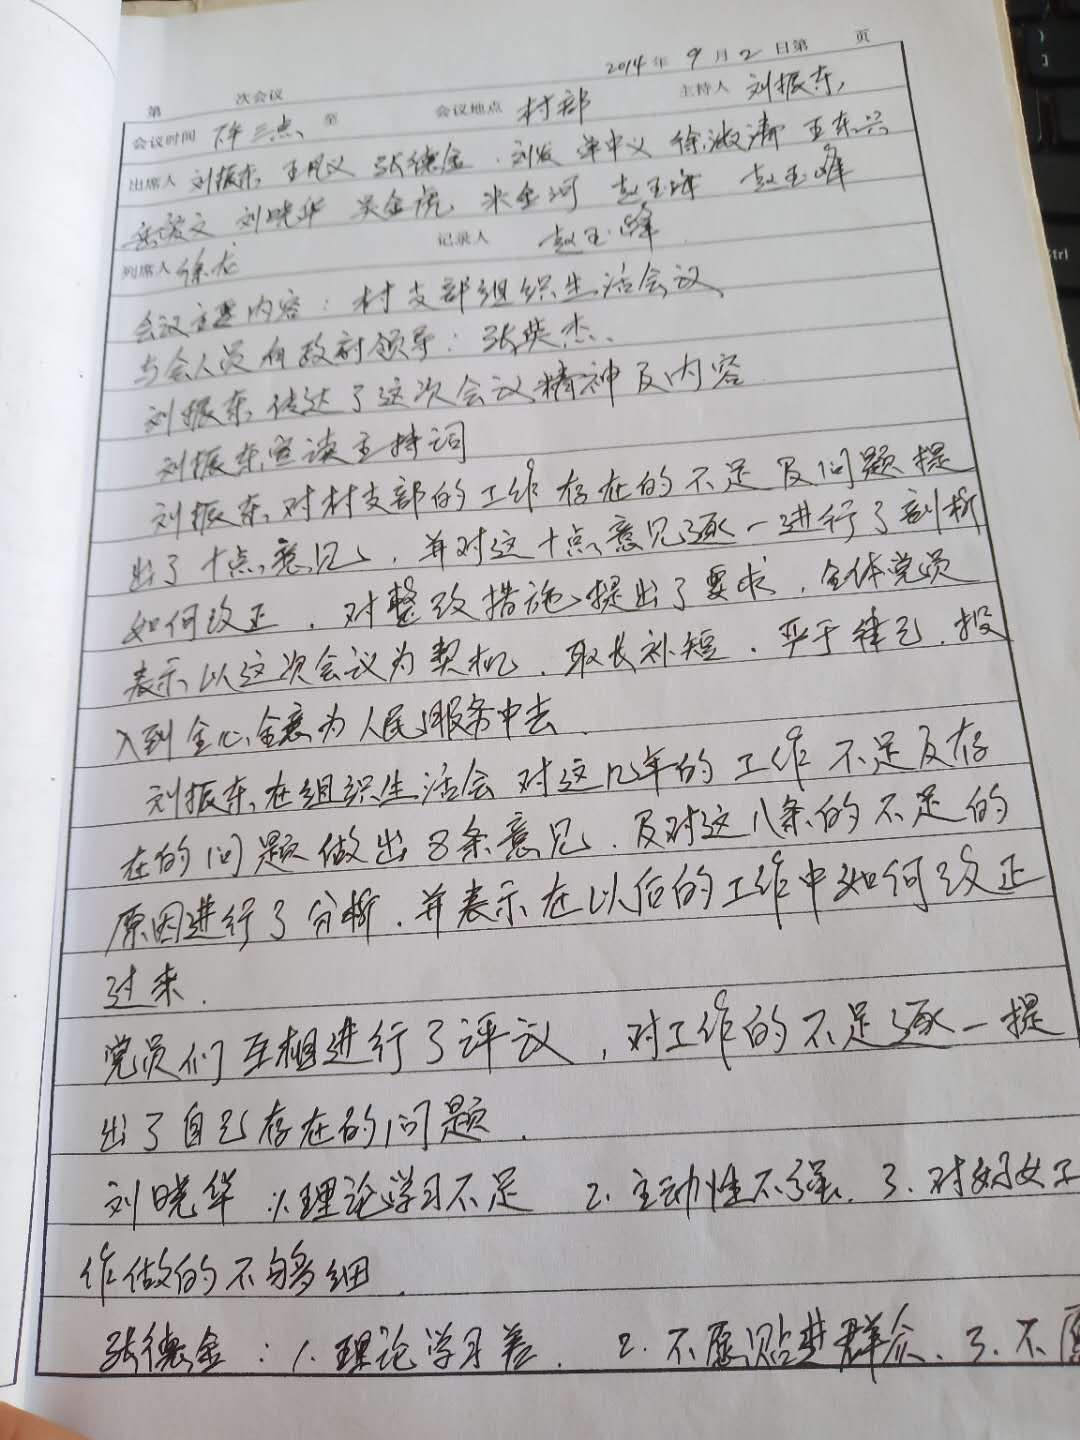 2014年 9月 2日第 页
第 次会议
会议时间 下午三点 至 会议地点 村部 主持人 刘振东
出席人 刘振东 王凡义 张德金 刘发 单中义 徐淑清 王东兴
刘晓华 吴金虎 米金河 赵玉峰
记录人 赵玉峰
列席人 徐龙
会议主要内容：村支部组织生活会议
与会人员有政府领导：张英杰
刘振东传达了这次会议精神及内容
刘振东宣读主持词
刘振东对村支部的工作存在的不足及问题提
出了十点意见，并对这十点意见逐一进行了剖析
如何改正，对整改措施提出了要求，全体党员
表示以这次会议为契机，取长补短，严于律己，投
入到全心全意为人民服务中去
刘振东在组织生活会对这几年的工作不足及存
在的问题做出8条意见，及对这八条的不足的
原因进行了分析，并表示在以后的工作中如何改正
过来.
党员们互相进行了评议，对工作的不足逐一提
出了自己存在的问题.
刘晓华：1.理论学习不足 2.主动性不强. 3.对妇女工
作做的不够细.
张德金：1.理论学习差. 2.不愿贴进群众. 3.不愿